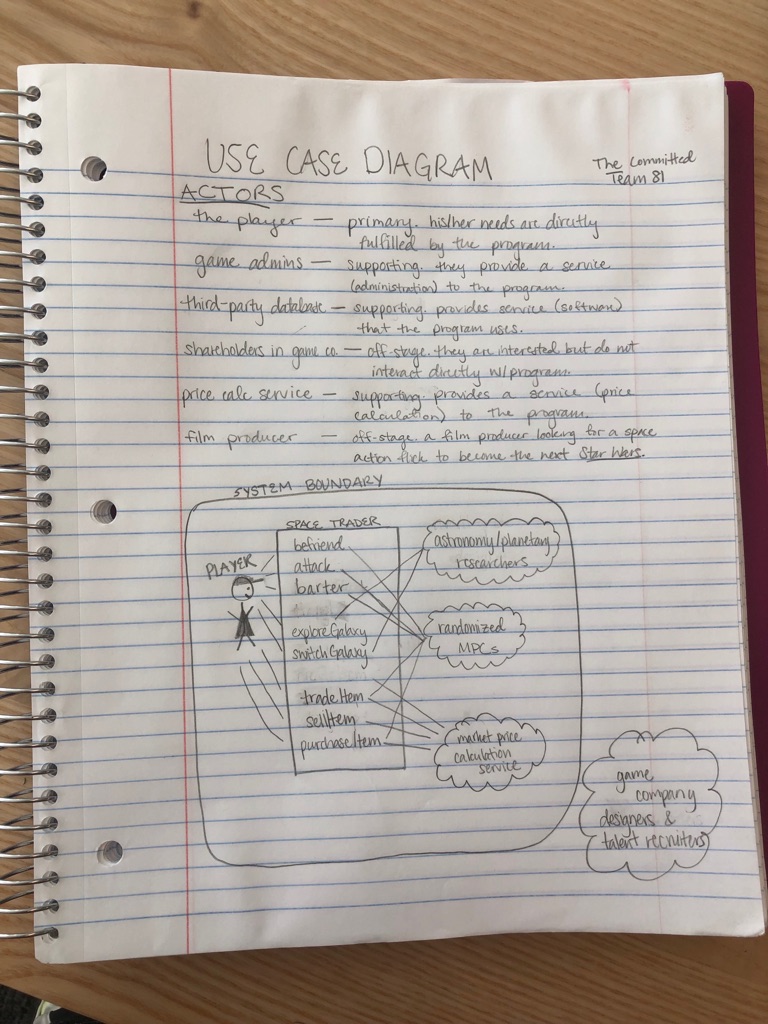 USE CASE DIAGRAM
The Committed
Team 81
ACTORS
the player — primary. his/her needs are directly
fulfilled by the program.
game admins — supporting. they provide a service
(administration) to the program.
third-party database — supporting. provides service (software)
that the program uses.
shareholders in game co. — off-stage. they are interested but do not
interact directly w/program.
price calc service — supporting. provides a service (price
calculation) to the program.
film producer — off-stage. a film producer looking for a space
action flick to become the next Star Wars.
SYSTEM BOUNDARY
SPACE TRADER
PLAYER
befriend
attack
barter
exploreGalaxy
switchGalaxy
tradeItem
sellItem
purchaseItem
astronomy/planetary
researchers
randomized
MPCs
market price
calculation
service
game
company
designers &
talent recruiters